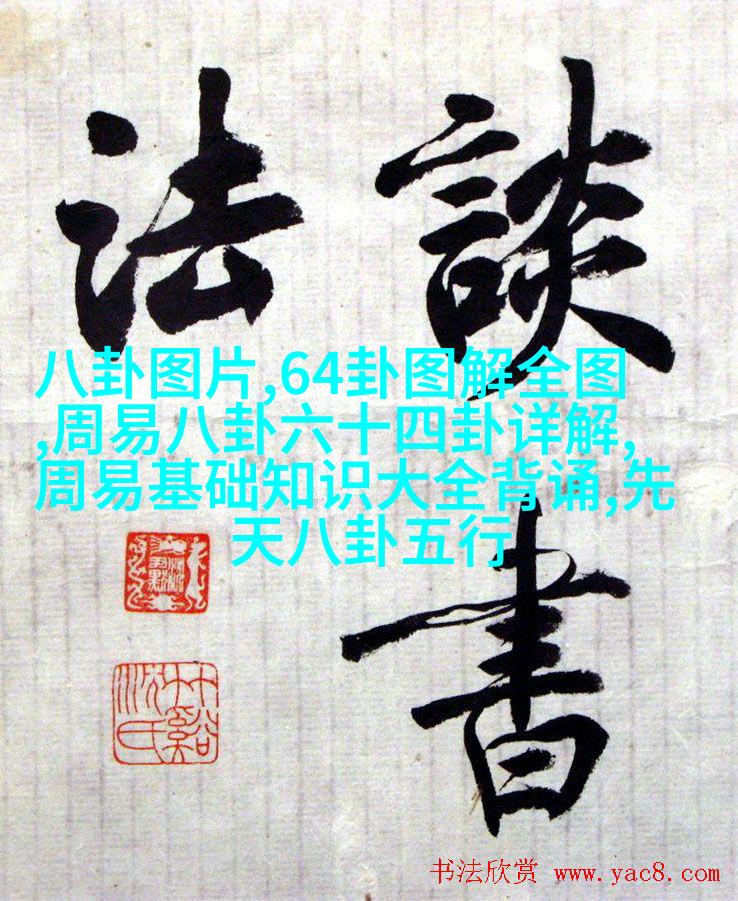 談書
法
八卦图片,64卦图解全图
,周易八卦六十四卦详解,
周易基础知识大全背诵,先
天八卦五行
竹谿
沈氏
书法欣赏 www.yac8.com